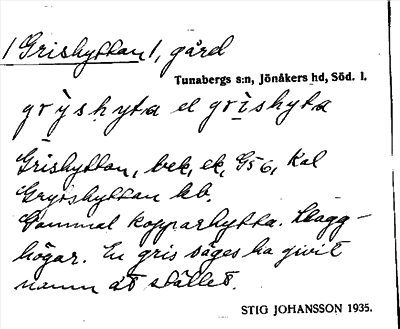 /Grishyttan/, gård
Tunabergs s:n, Jönåkers hd, Söd. l.
grỳshyta el grishyta
Grishyttan, bek, ek, G56, Kal
Grytshyttan hb.
Gammal kopparhytta. Slagg-
högar. En gris säges ha givit
namn åt stället.
STIG JOHANSSON 1935.